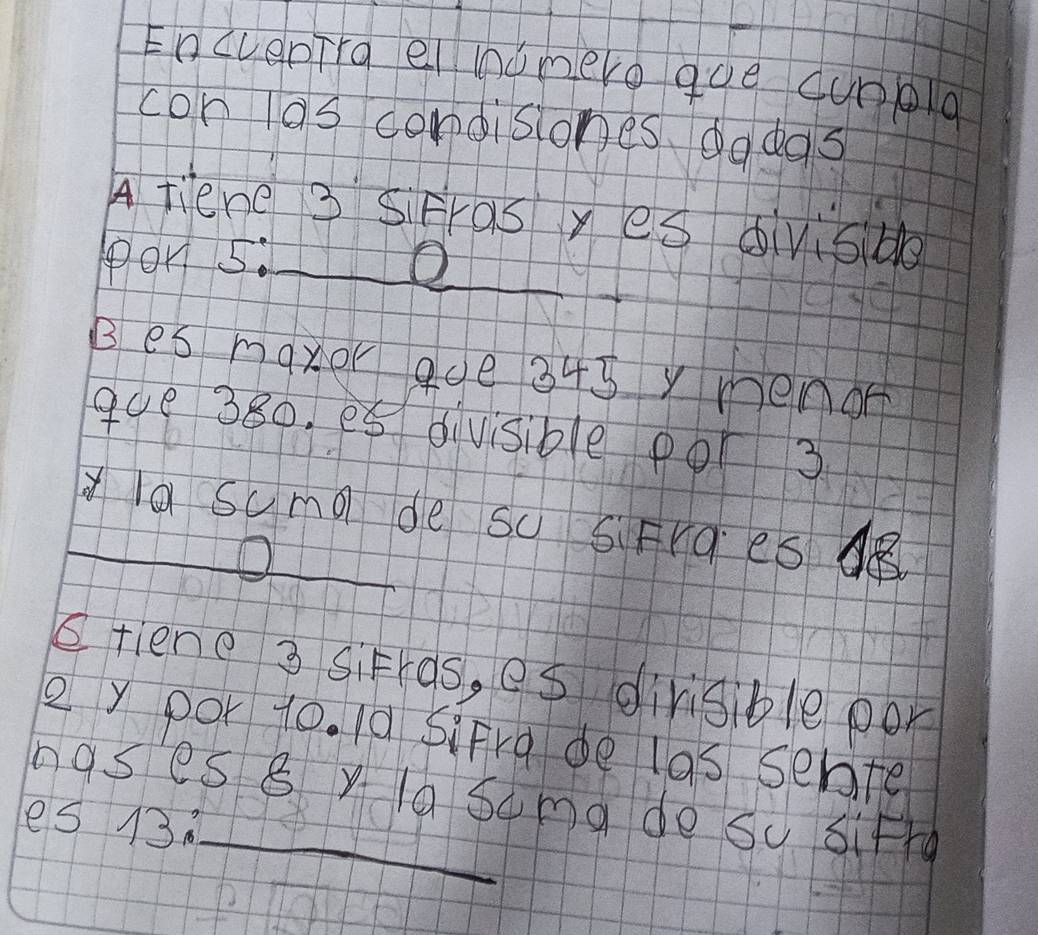 Encuentra el número que cunpla
con las condisiones dadas
A Tiene 3 sifras y es divisible
por 5: 0
B es mayor que 345 y menor
que 380. es divisible por 3
y la suma de su sifra es 18
0
C tiene 3 sifras, es dirisible por
2 y por 10. la sifra de las sente
nas es 8 y la suma de su sifra
es 13: